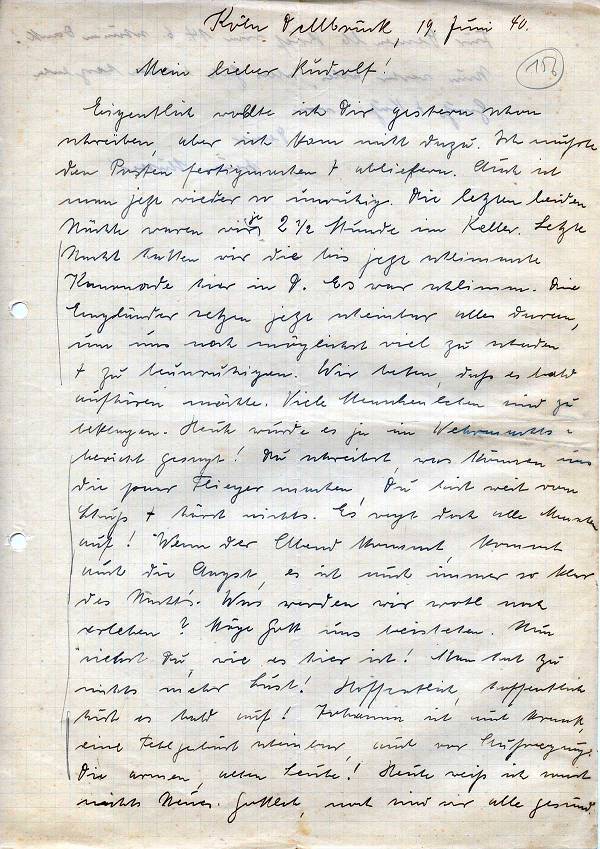 Köln Dellbrück, 19. Juni 40.
156
Mein lieber Rudolf!
Eigentlich wollte ich Dir gestern schon
schreiben, aber ich kam nicht dazu. Ich mußte
den Posten fertigmachen + abliefern. Auch ist
man jetzt wieder so unruhig. Die letzten beiden
Nächte waren wir je 2 1/2 Stunde im Keller. Letzte
Nacht hatten wir die bis jetzt schlimmste
Kanonade hier in D. Es war schlimm. Die
Engländer setzen jetzt scheinbar alles daran,
um uns noch möglichst viel zu schaden
+ zu beunruhigen. Wir beten, daß es bald
aufhören möchte. Viele Menschenleben sind zu
beklagen. Heute wurde es ja im Wehrmachts-
bericht gesagt! Du schreibst, was können uns
die paar Flieger machen, Du bist weit vom
Schuß + hörst nichts. Es regt doch alle Menschen
auf! Wenn der Abend kommt, kommt
auch die Angst, es ist auch immer so klar
des Nachts. Was werden wir wohl noch
erleben? Möge Gott uns beistehen. Nun
siehst Du, wie es hier ist! Man hat zu
nichts mehr Lust! Hoffentlich, hoffentlich
hört es bald auf! Johanna ist auch krank,
eine Fehlgeburt scheinbar, auch vor Aufregung.
Die armen, alten Leute! Heute weiß ich sonst
nichts Neues. Gottlob, noch sind wir alle gesund.